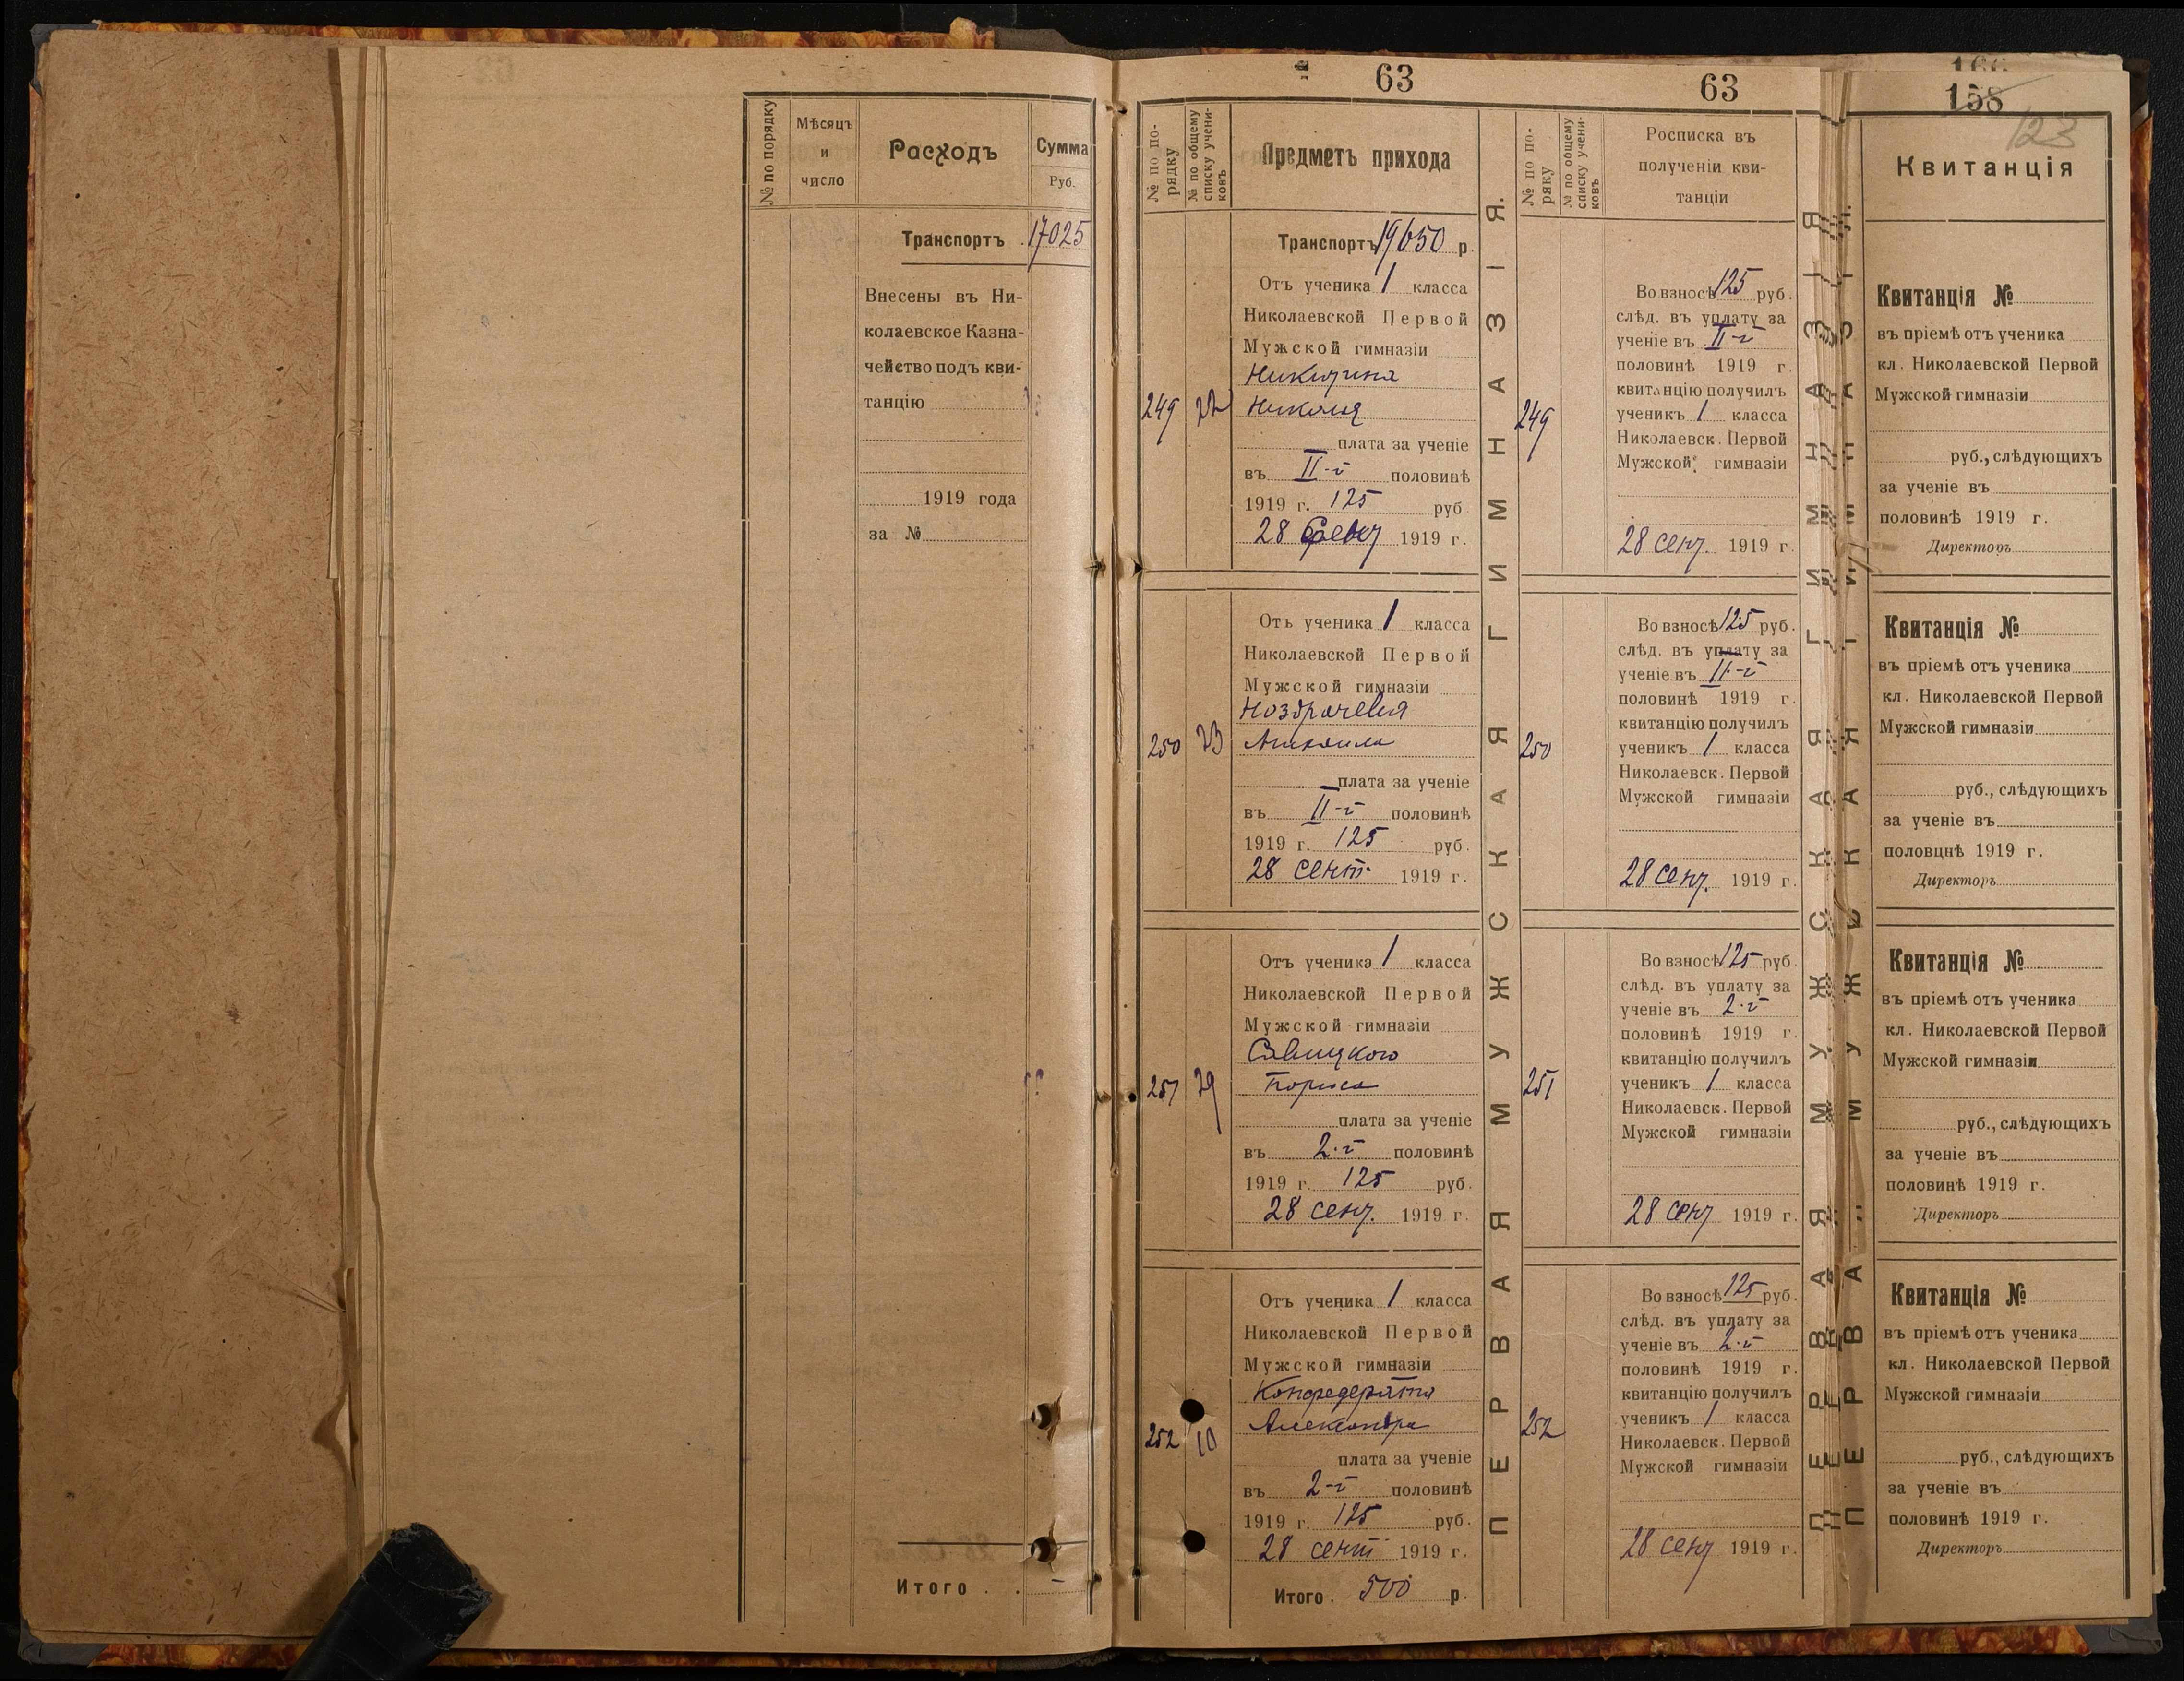 № по порядку
Мѣсяцъ
и
число
Расходъ
Сумма
Руб.
Транспортъ . 17025
Внесены въ Ни-
колаевское Казна-
чейство подъ кви-
танцію
1919 года
за №
Итого . . —
63
№ по по-
рядку
№ по общему
списку учени-
ковъ
Предметъ прихода
Транспортъ 19650 р.
249
22
Отъ ученика 1 класса
Николаевской Первой
Мужской гимназіи
Никитина
Николая
плата за ученіе
въ II-й половинѣ
1919 г. 125 руб
28 1919 г.
250
23
Отъ ученика 1 класса
Николаевской Первой
Мужской гимназіи
Ноздрачева
Михаила
плата за ученіе
въ II-й половинѣ
1919 г. 125 руб.
28 сент. 1919 г.
251
29
Отъ ученика 1 класса
Николаевской Первой
Мужской гимназіи
Савицкого
Бориса
плата за ученіе
въ 2-й половинѣ
1919 г. 125 руб.
28 сент. 1919 г.
252
10
Отъ ученика 1 класса
Николаевской Первой
Мужской гимназіи
Конфедерата
Александра
плата за ученіе
въ 2-й половинѣ
1919 г. 125 руб.
28 сент 1919 г.
Итого . 500 р.
ПЕРВАЯ МУЖСКАЯ ГИМНАЗІЯ.
63
№ по по-
ряку
№ по общему
списку учени-
ковъ
Росписка въ
полученіи кви-
танціи
249
Во взносѣ 125 руб.
слѣд. въ уплату за
ученіе въ II-й
половинѣ 1919 г.
квитанцію получилъ
ученикъ 1 класса
Николаевск. Первой
Мужской гимназіи
28 сент. 1919 г.
250
Во взносѣ 125 руб.
слѣд. въ уплату за
ученіе въ II-й
половинѣ 1919 г.
квитанцію получилъ
ученикъ 1 класса
Николаевск. Первой
Мужской гимназіи
28 сент. 1919 г.
251
Во взносѣ 125 руб.
слѣд. въ уплату за
ученіе въ 2-й
половинѣ 1919 г.
квитанцію получилъ
ученикъ 1 класса
Николаевск. Первой
Мужской гимназіи
28 сент 1919 г.
252
Во взносѣ 125 руб.
слѣд. въ уплату за
ученіе въ 2-й
половинѣ 1919 г.
квитанцію получилъ
ученикъ 1 класса
Николаевск. Первой
Мужской гимназіи
28 сент 1919 г.
ПЕРВАЯ МУЖСКАЯ ГИМНАЗІЯ
158
123
Квитанція
Квитанція №
въ пріемѣ отъ ученика
кл. Николаевской Первой
Мужской гимназіи
руб., слѣдующихъ
за ученіе въ
половинѣ 1919 г.
Директоръ
Квитанція №
въ пріемѣ отъ ученика
кл. Николаевской Первой
Мужской гимназіи
руб., слѣдующихъ
за ученіе въ
половцнѣ 1919 г.
Директоръ
Квитанція №
въ пріемѣ отъ ученика
кл. Николаевской Первой
Мужской гимназіи
руб., слѣдующихъ
за ученіе въ
половинѣ 1919 г.
Директоръ
Квитанція №
въ пріемѣ отъ ученика
кл. Николаевской Первой
Мужской гимназіи
руб., слѣдующихъ
за ученіе въ
половинѣ 1919 г.
Директоръ